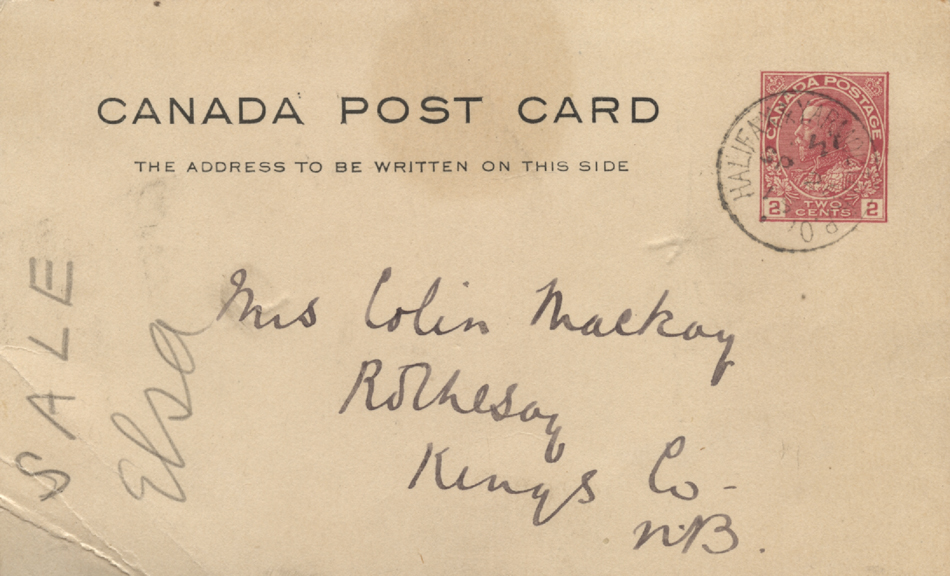 CANADA POST CARD
THE ADDRESS TO BE WRITTEN ON THIS SIDE
CANADA POSTAGE
2 TWO CENTS 2
HALIFAX
Mrs Colin Mackay
Rothesay
Kings Co-
N.B.
SALE
Elsa